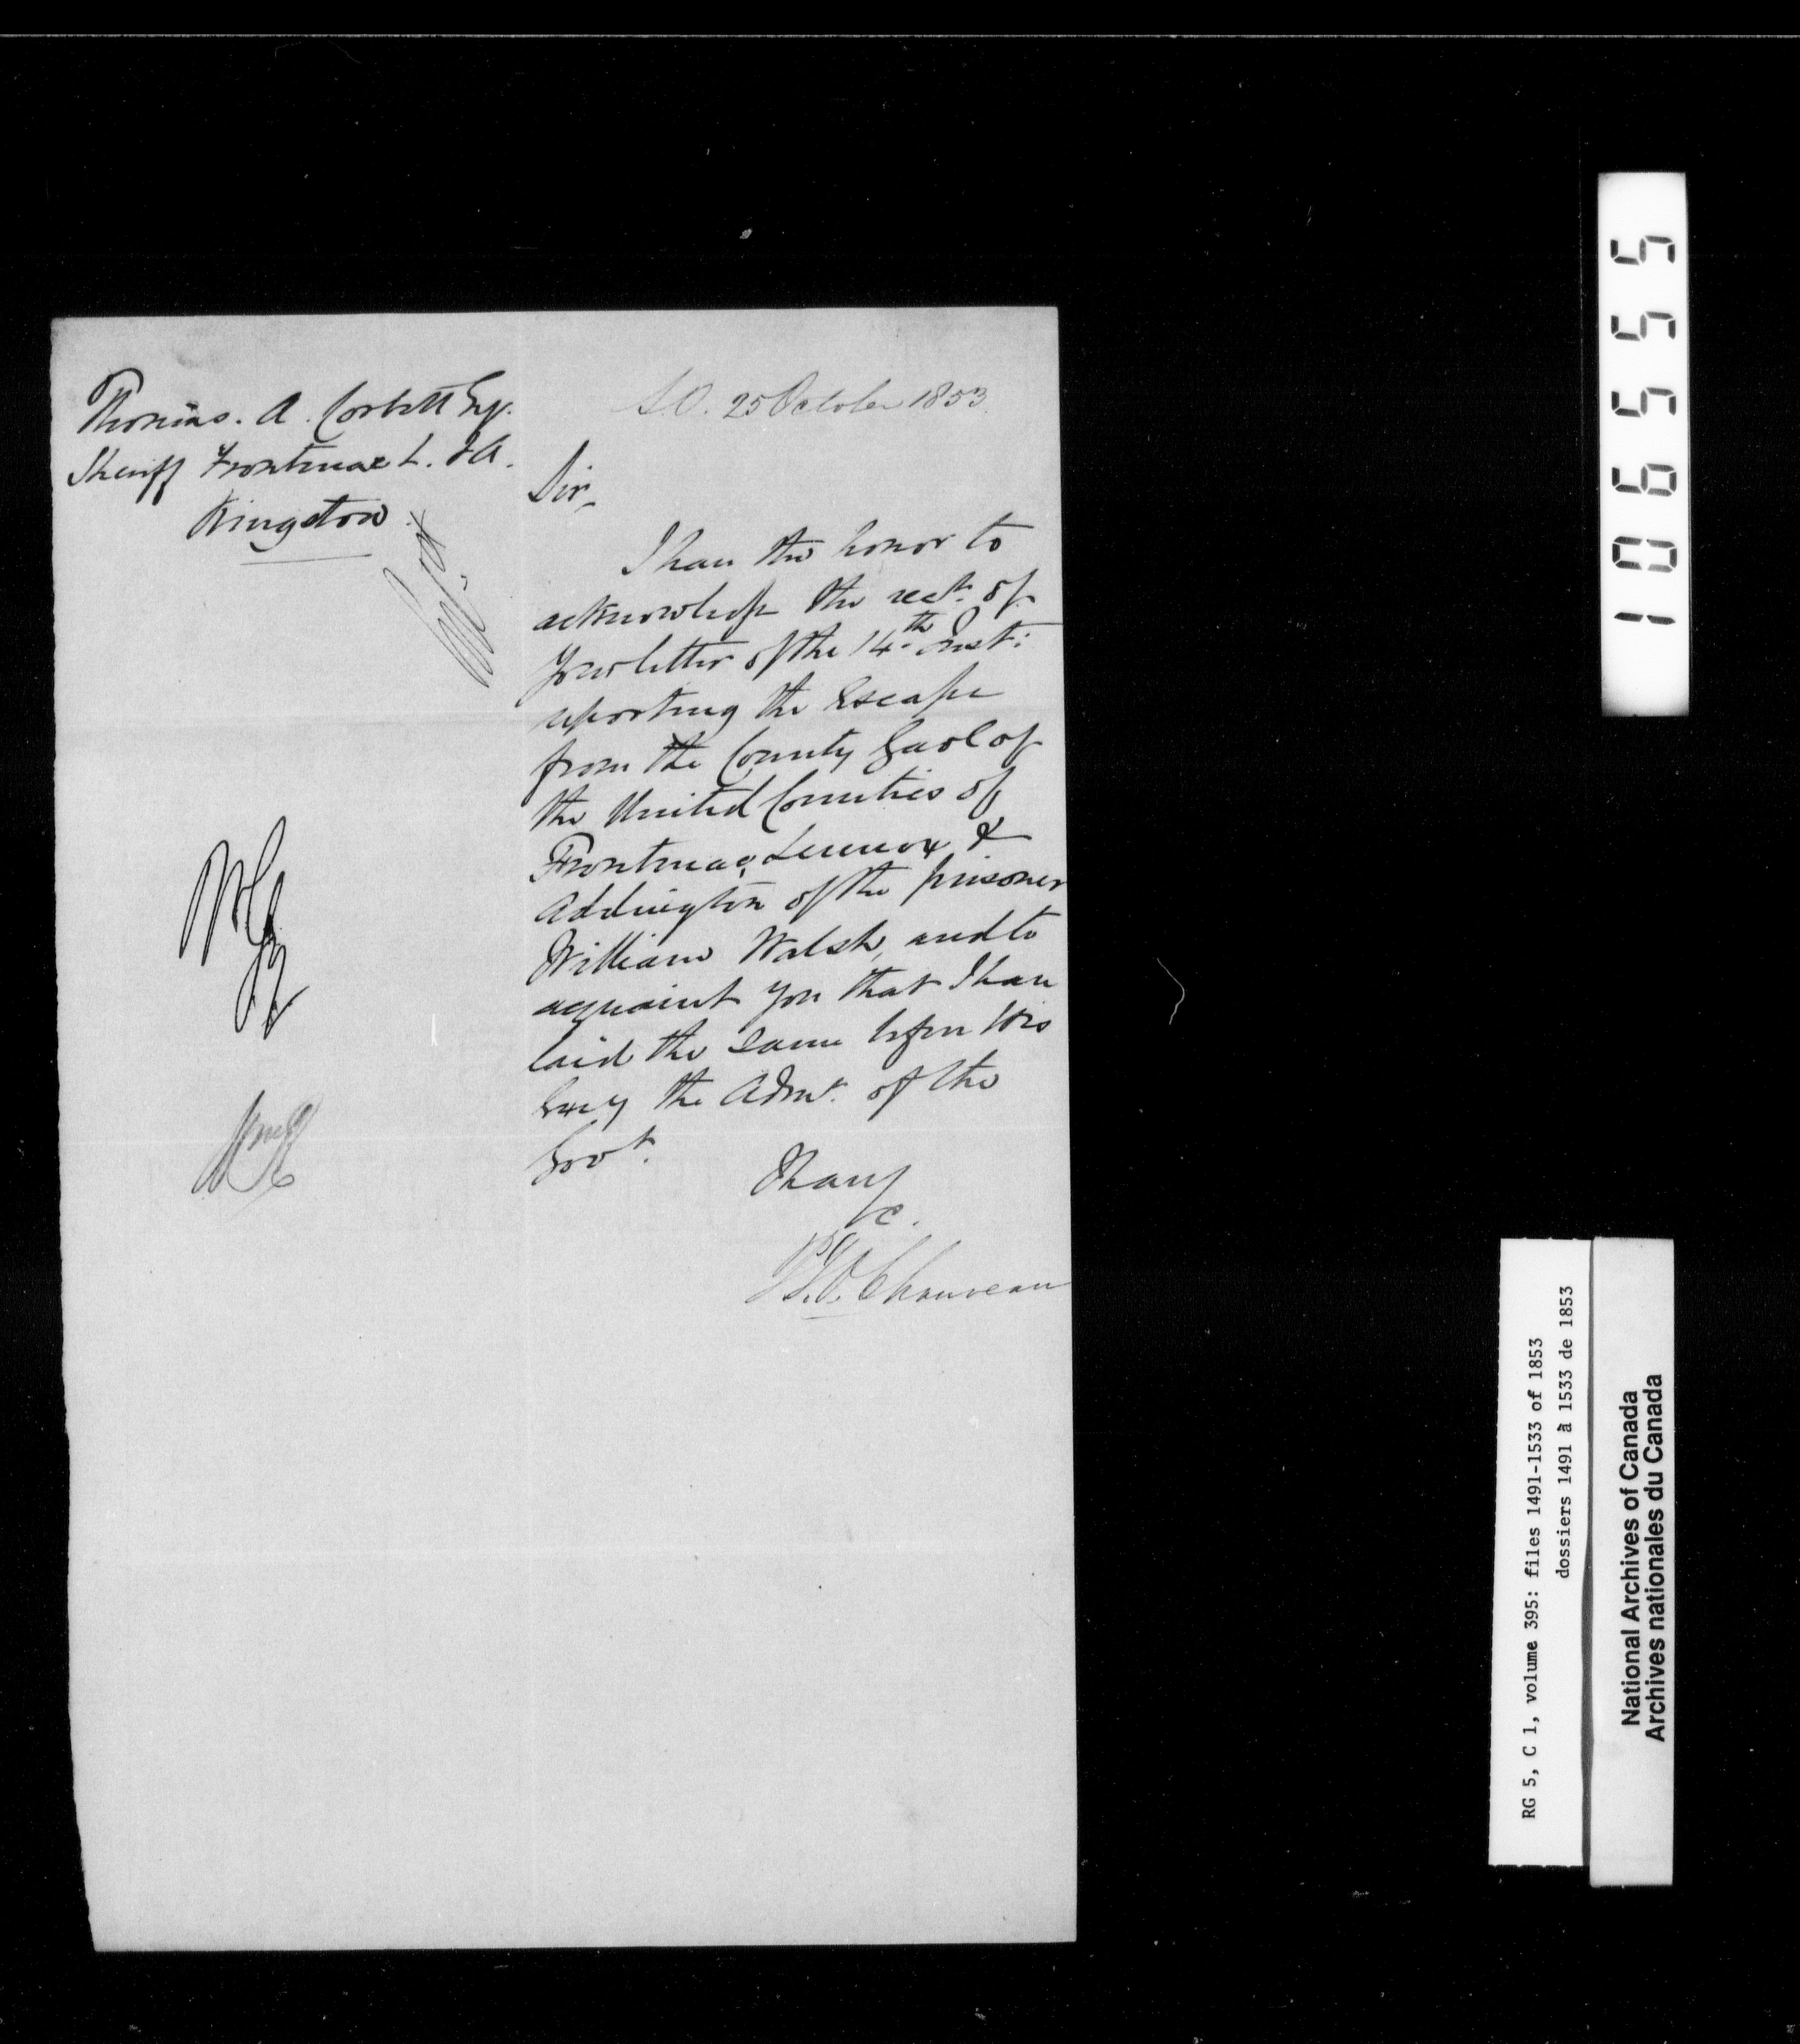 Thomas. A. Corbett Esq.
Sheriff Frontenac L. & A.
Kingston
S.O. 25 October 1853.
Sir,
I have the honor to
acknowledge the rect. of
your letter of the 14th Inst:
reporting the Escape
from the County Gaol of
the United Counties of
Frontenac, Lennox &
Addington of the prisoner
William Walsh, and to
acquaint you that I have
laid the same before His
Excy the Admr. of the
Govt.
I have
&c.
P.J.O. Chauveau
106555
RG 5, C 1, volume 395: files 1491-1533 of 1853
dossiers 1491 à 1533 de 1853
National Archives of Canada
Archives nationales du Canada